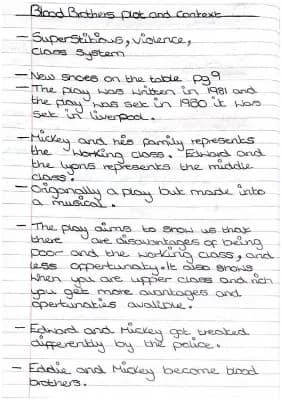 Blood Brothers plot and context
- Superstitious, violence,
class system
- New shoes on the table pg9
- The play was written in 1981 and
the play was set in 1980 it was
set in Liverpool.
- Mickey and his family represents
the working class. Edward and
the lyons represents the middle
class.
- Origonally a play but made into
a musical.
- The play aims to show us that
there are disavantages of being
poor and the working class, and
less oppertunaty. It also shows
when you are upper class and rich
you get more avantages and
opertunaties avalible.
- Edward and Mickey got treated
differently by the police.
- Eddie and Mickey become blood
brothers.